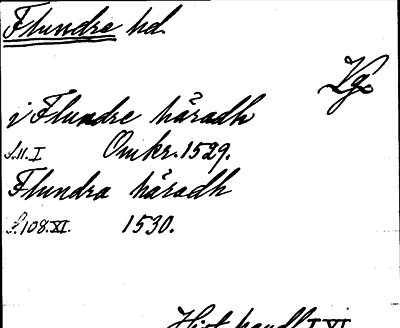 Flundre hd.
Vg.
i Flundre häradh
s. 11. I Omkr. 1529.
Flundra häradh
s. 108. XI. 1530.
Hist. handl. I XI